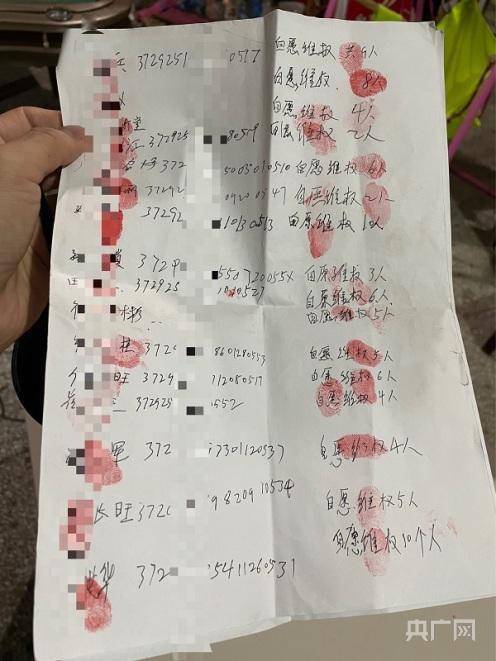 兵 3729251 0517 自愿维权 共6人
自愿维权 8人
自愿维权 4人
江 372925 80519 自愿维权 2人
372 5005010510 自愿维权 6人
37292 0920 0547 自愿维权 2人
37292 110130513 自愿维权 1人
372 550720055X 自愿维权 3人
372925 自愿维权 6人
自愿维权 5人
372 8601280553 自愿维权 5人
旺 3729 112080517 自愿维权 6人
372925 552 自愿维权 4人
军 372 7301120537 自愿维权 4人
长旺 372 9820910534 自愿维权 5人
自愿维权 10个人
华 372 5411260531
央广网